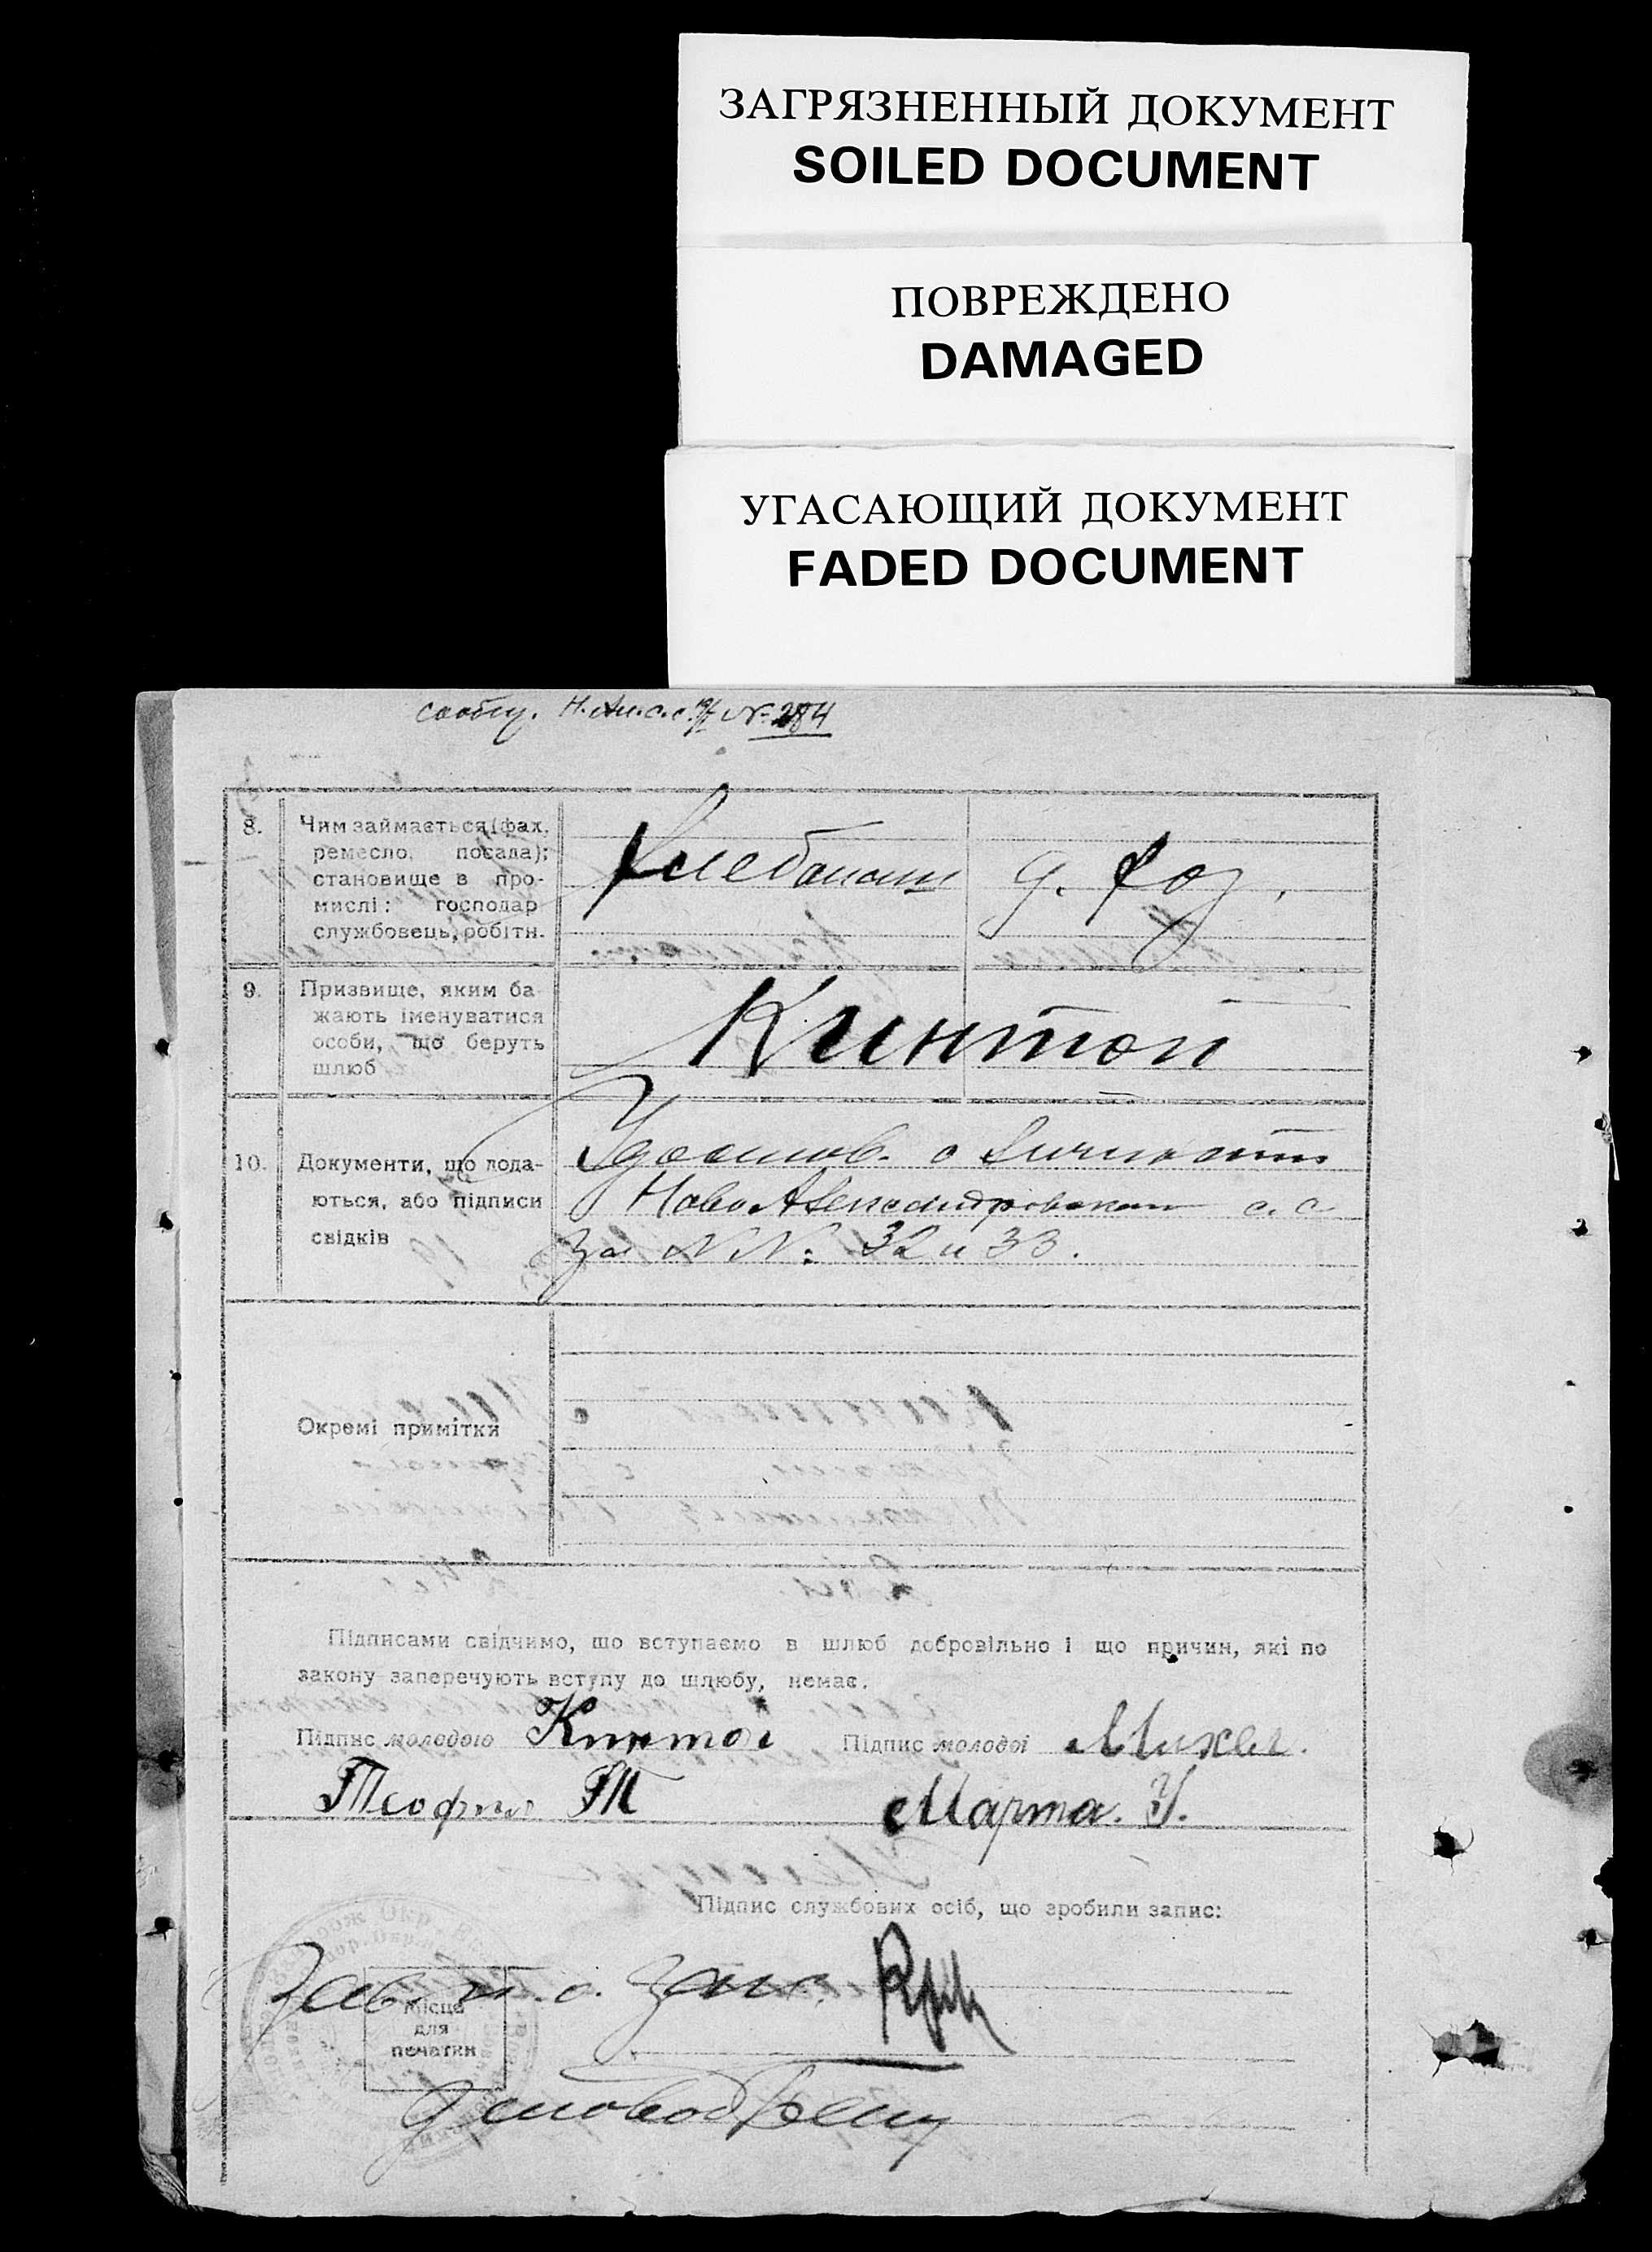 ЗАГРЯЗНЕННЫЙ ДОКУМЕНТ
SOILED DOCUMENT
ПОВРЕЖДЕНО
DAMAGED
УГАСАЮЩИЙ ДОКУМЕНТ
FADED DOCUMENT
сообщ. № 284
8. Чим займається (фах,
ремесло, посада);
становище в про-
мислі: господар
службовець, робітн.
Хлебопаш д. хоз.
9. Призвище, яким ба-
жають іменуватися
особи, що беруть
шлюб
Кинтоп
10. Документи, що пода-
ються, або підписи
свідків
Удостов. о личности
НовоАлександровском с. с.
за NN: 32 и 33.
Окремі примітки
Підписами свідчимо, що вступаємо в шлюб добровільно і що причин, які по
закону заперечують вступу до шлюбу, немає.
Підпис молодого Кинтоп Підпис молодої Михел.
Теофил Т Марта. У.
Підпис службових осіб, що зробили запис:
Зав. п. о. Загс.
Місце
для
печатки
Деловод